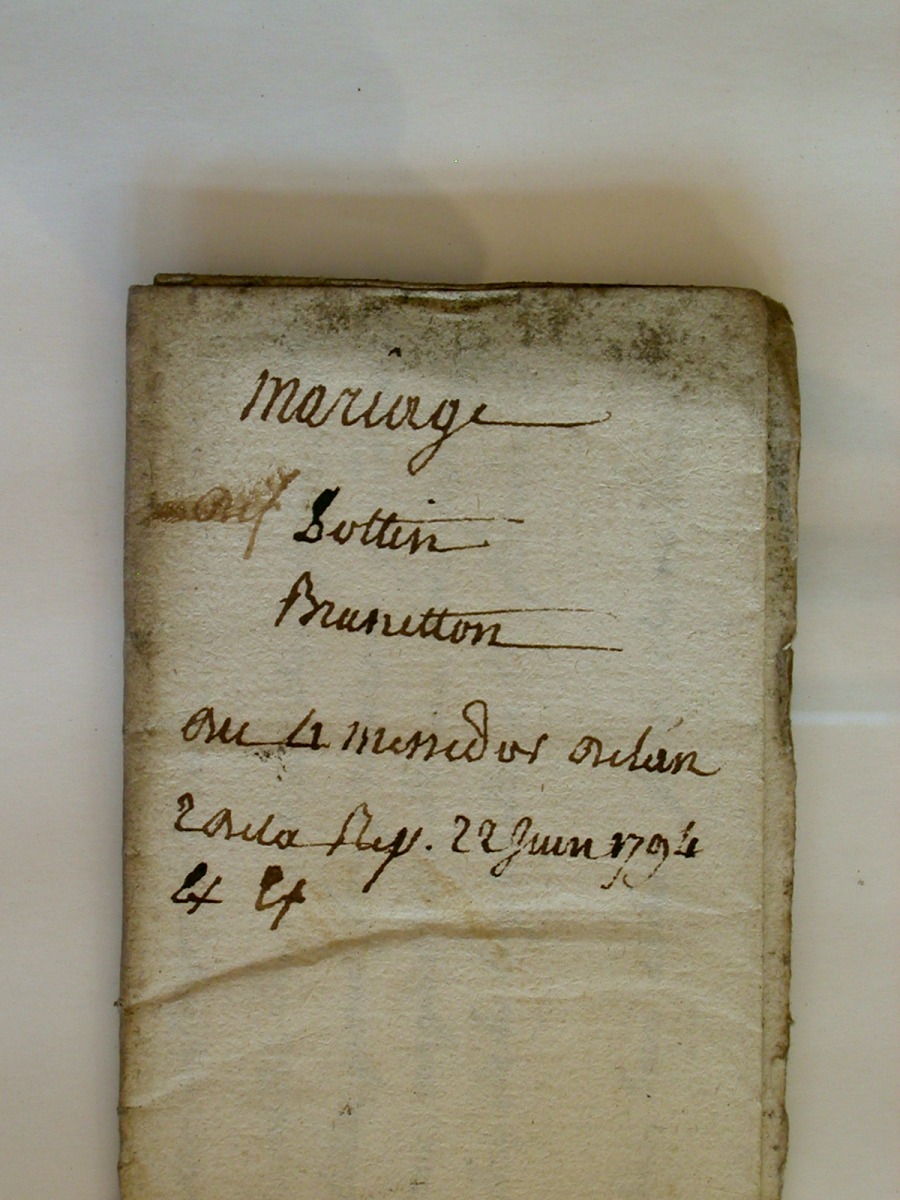 Mariage
Lottin
Brunetton
du 4 messidor de lán
2 de la Rep. 22 Juin 1794